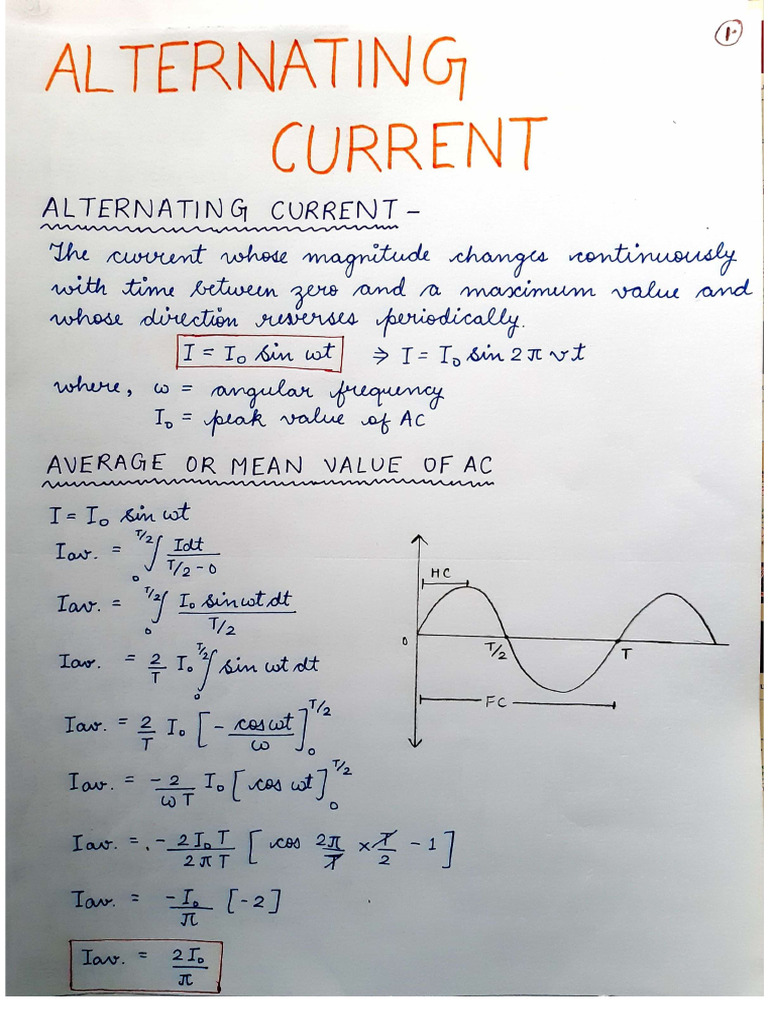 1.
ALTERNATING
CURRENT
ALTERNATING CURRENT –
The current whose magnitude changes continuously
with time between zero and a maximum value and
whose direction reverses periodically.
I = I₀ sin ωt ⇒ I = I₀ sin 2πνt
where, ω = angular frequency
I₀ = peak value of AC
AVERAGE OR MEAN VALUE OF AC
I = I₀ sin ωt
Iav. = ₀∫^T/2 Idt / T/2 - 0
Iav. = ₀∫^T/2 I₀ sinωt dt / T/2
Iav. = 2/T I₀ ₀∫^T/2 sin ωt dt
Iav. = 2/T I₀ [ - cosωt / ω ]₀^T/2
Iav. = -2/ωT I₀ [ cos ωt ]₀^T/2
Iav. = - 2I₀T / 2πT [ cos 2π/T × T/2 - 1 ]
Iav. = -I₀/π [-2]
Iav. = 2I₀/π
HC
0
T/2
T
FC